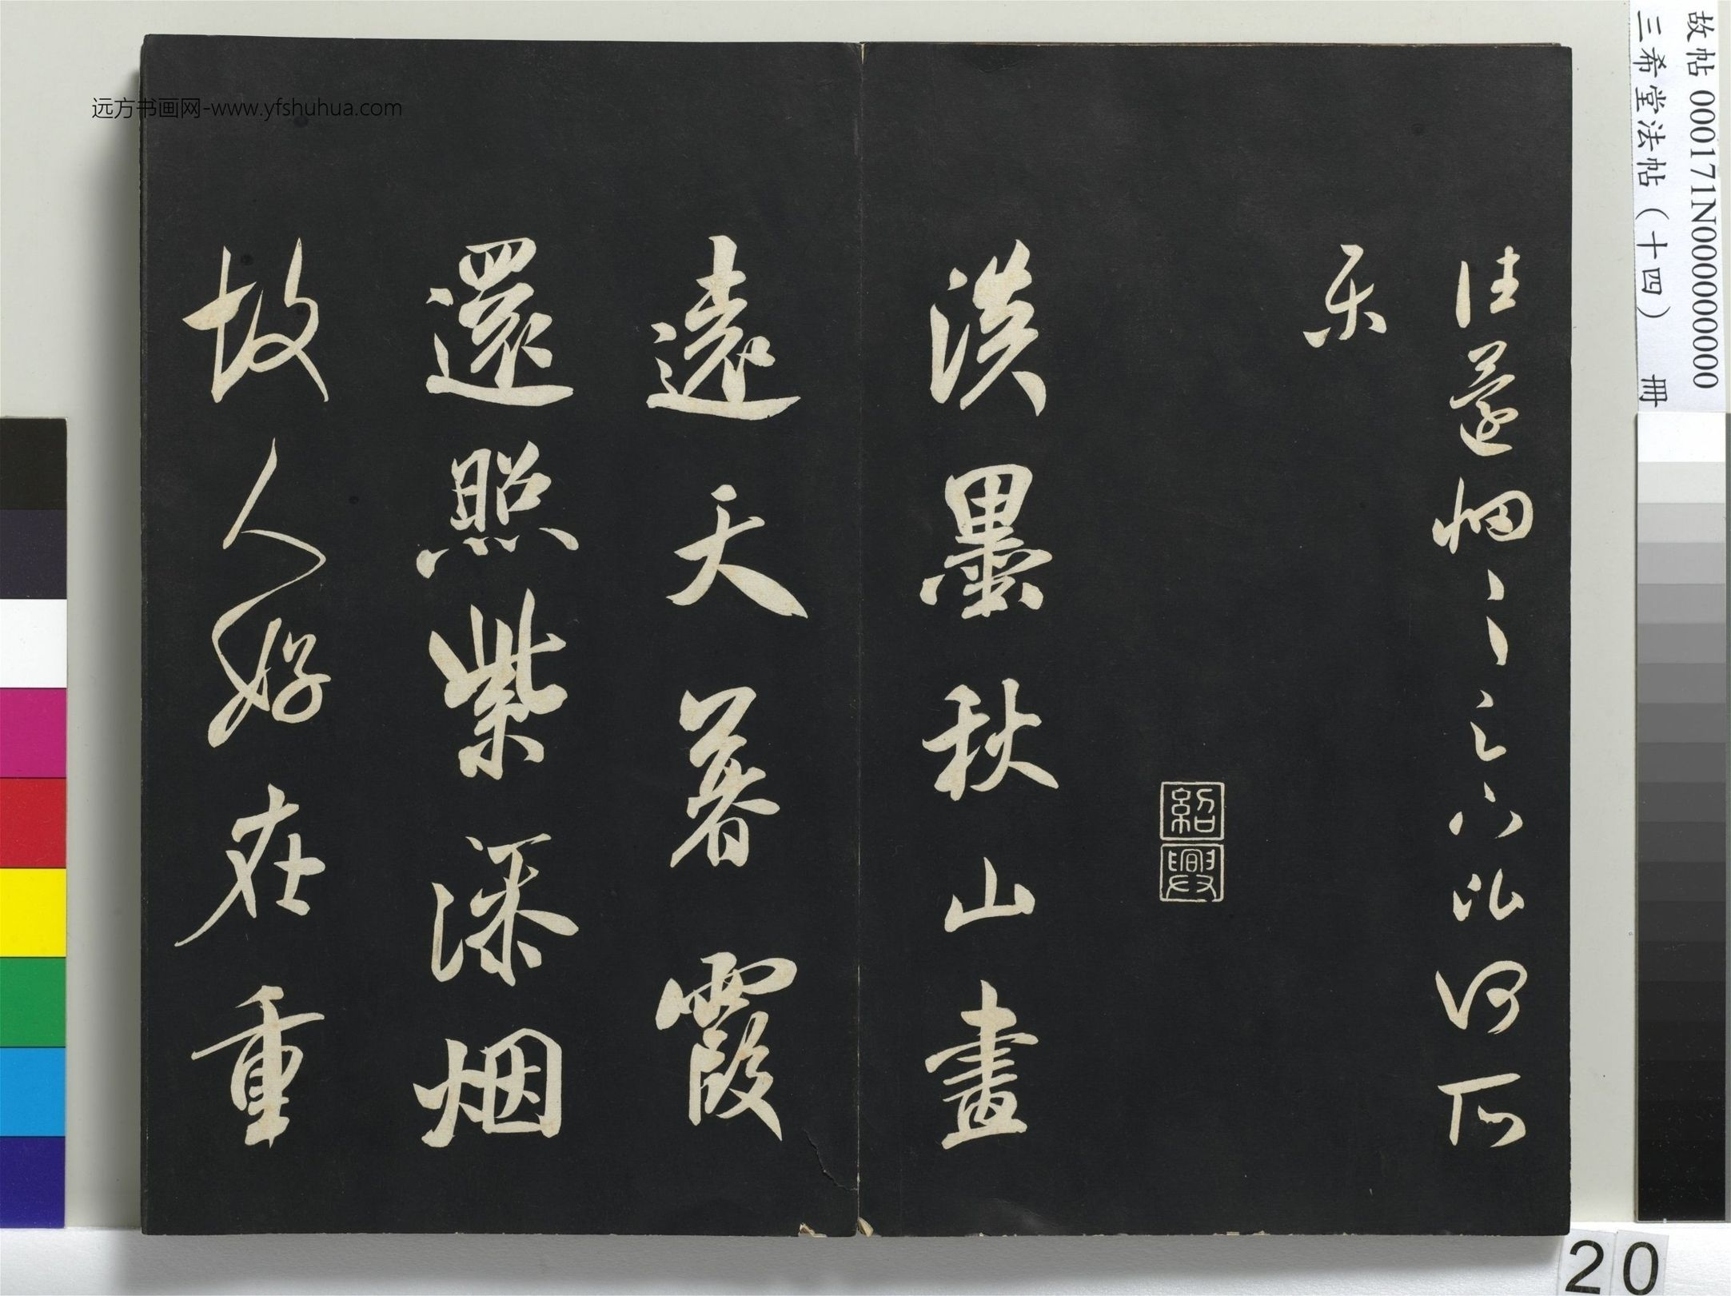 佳蓬悃之六法何所
乐
紹興
淡墨秋山畫
遠天暮霞
還照紫添烟
故人好在重
远方书画网-www.yfshuhua.com
故帖 000171N000000000
三希堂法帖（十四） 冊
20